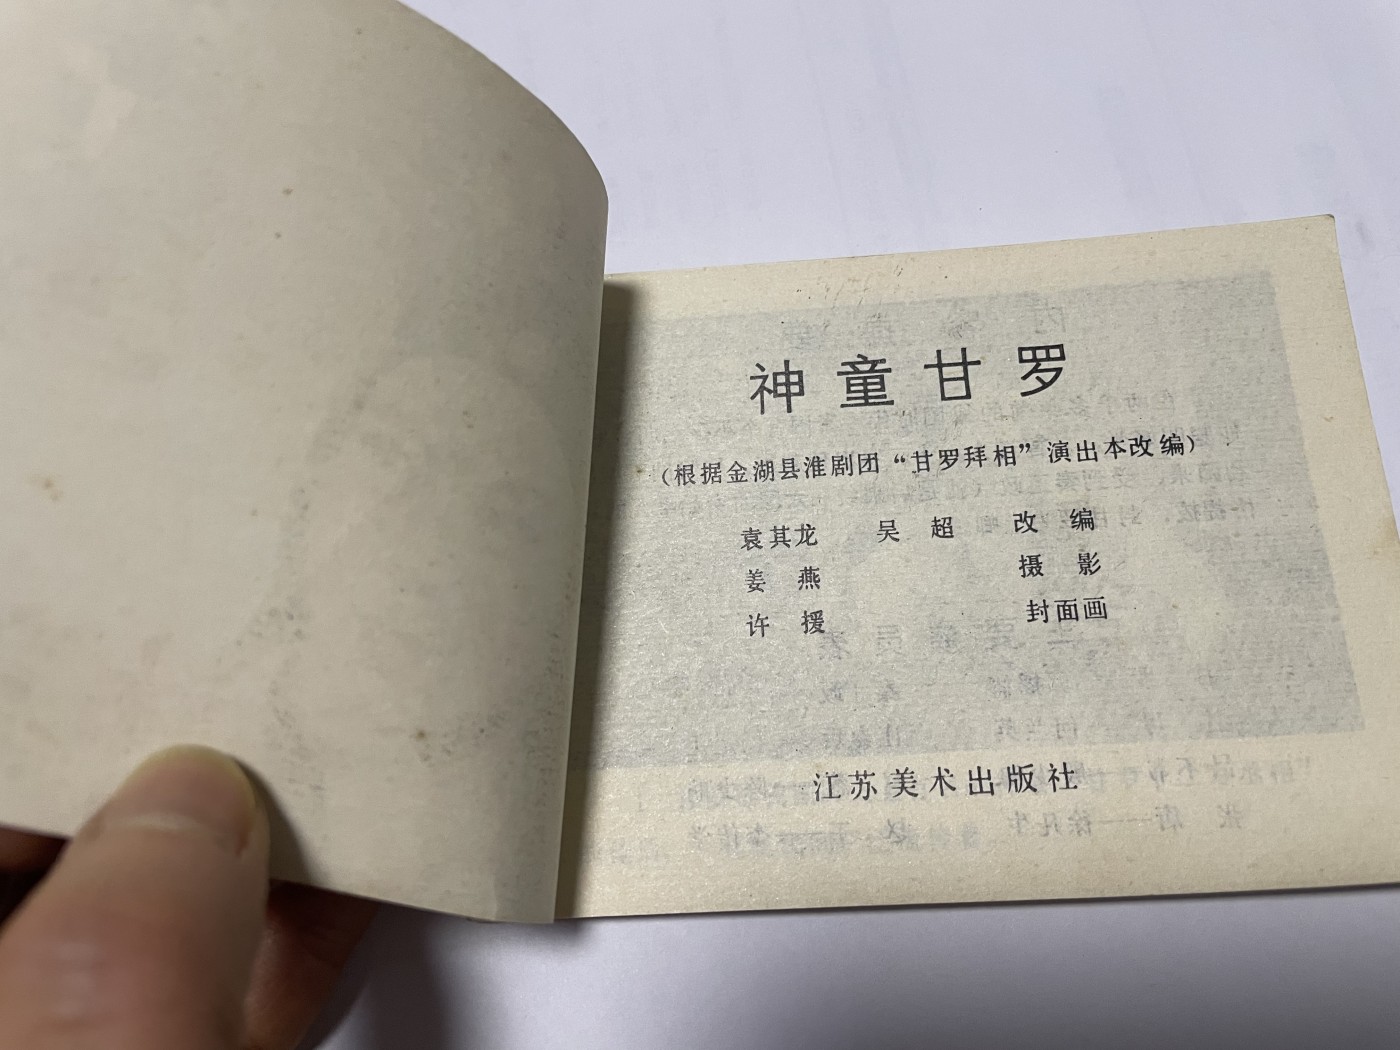 神童甘罗
（根据金湖县淮剧团“甘罗拜相”演出本改编）
袁其龙 吴超 改编
姜燕 摄影
许援 封面画
江苏美术出版社